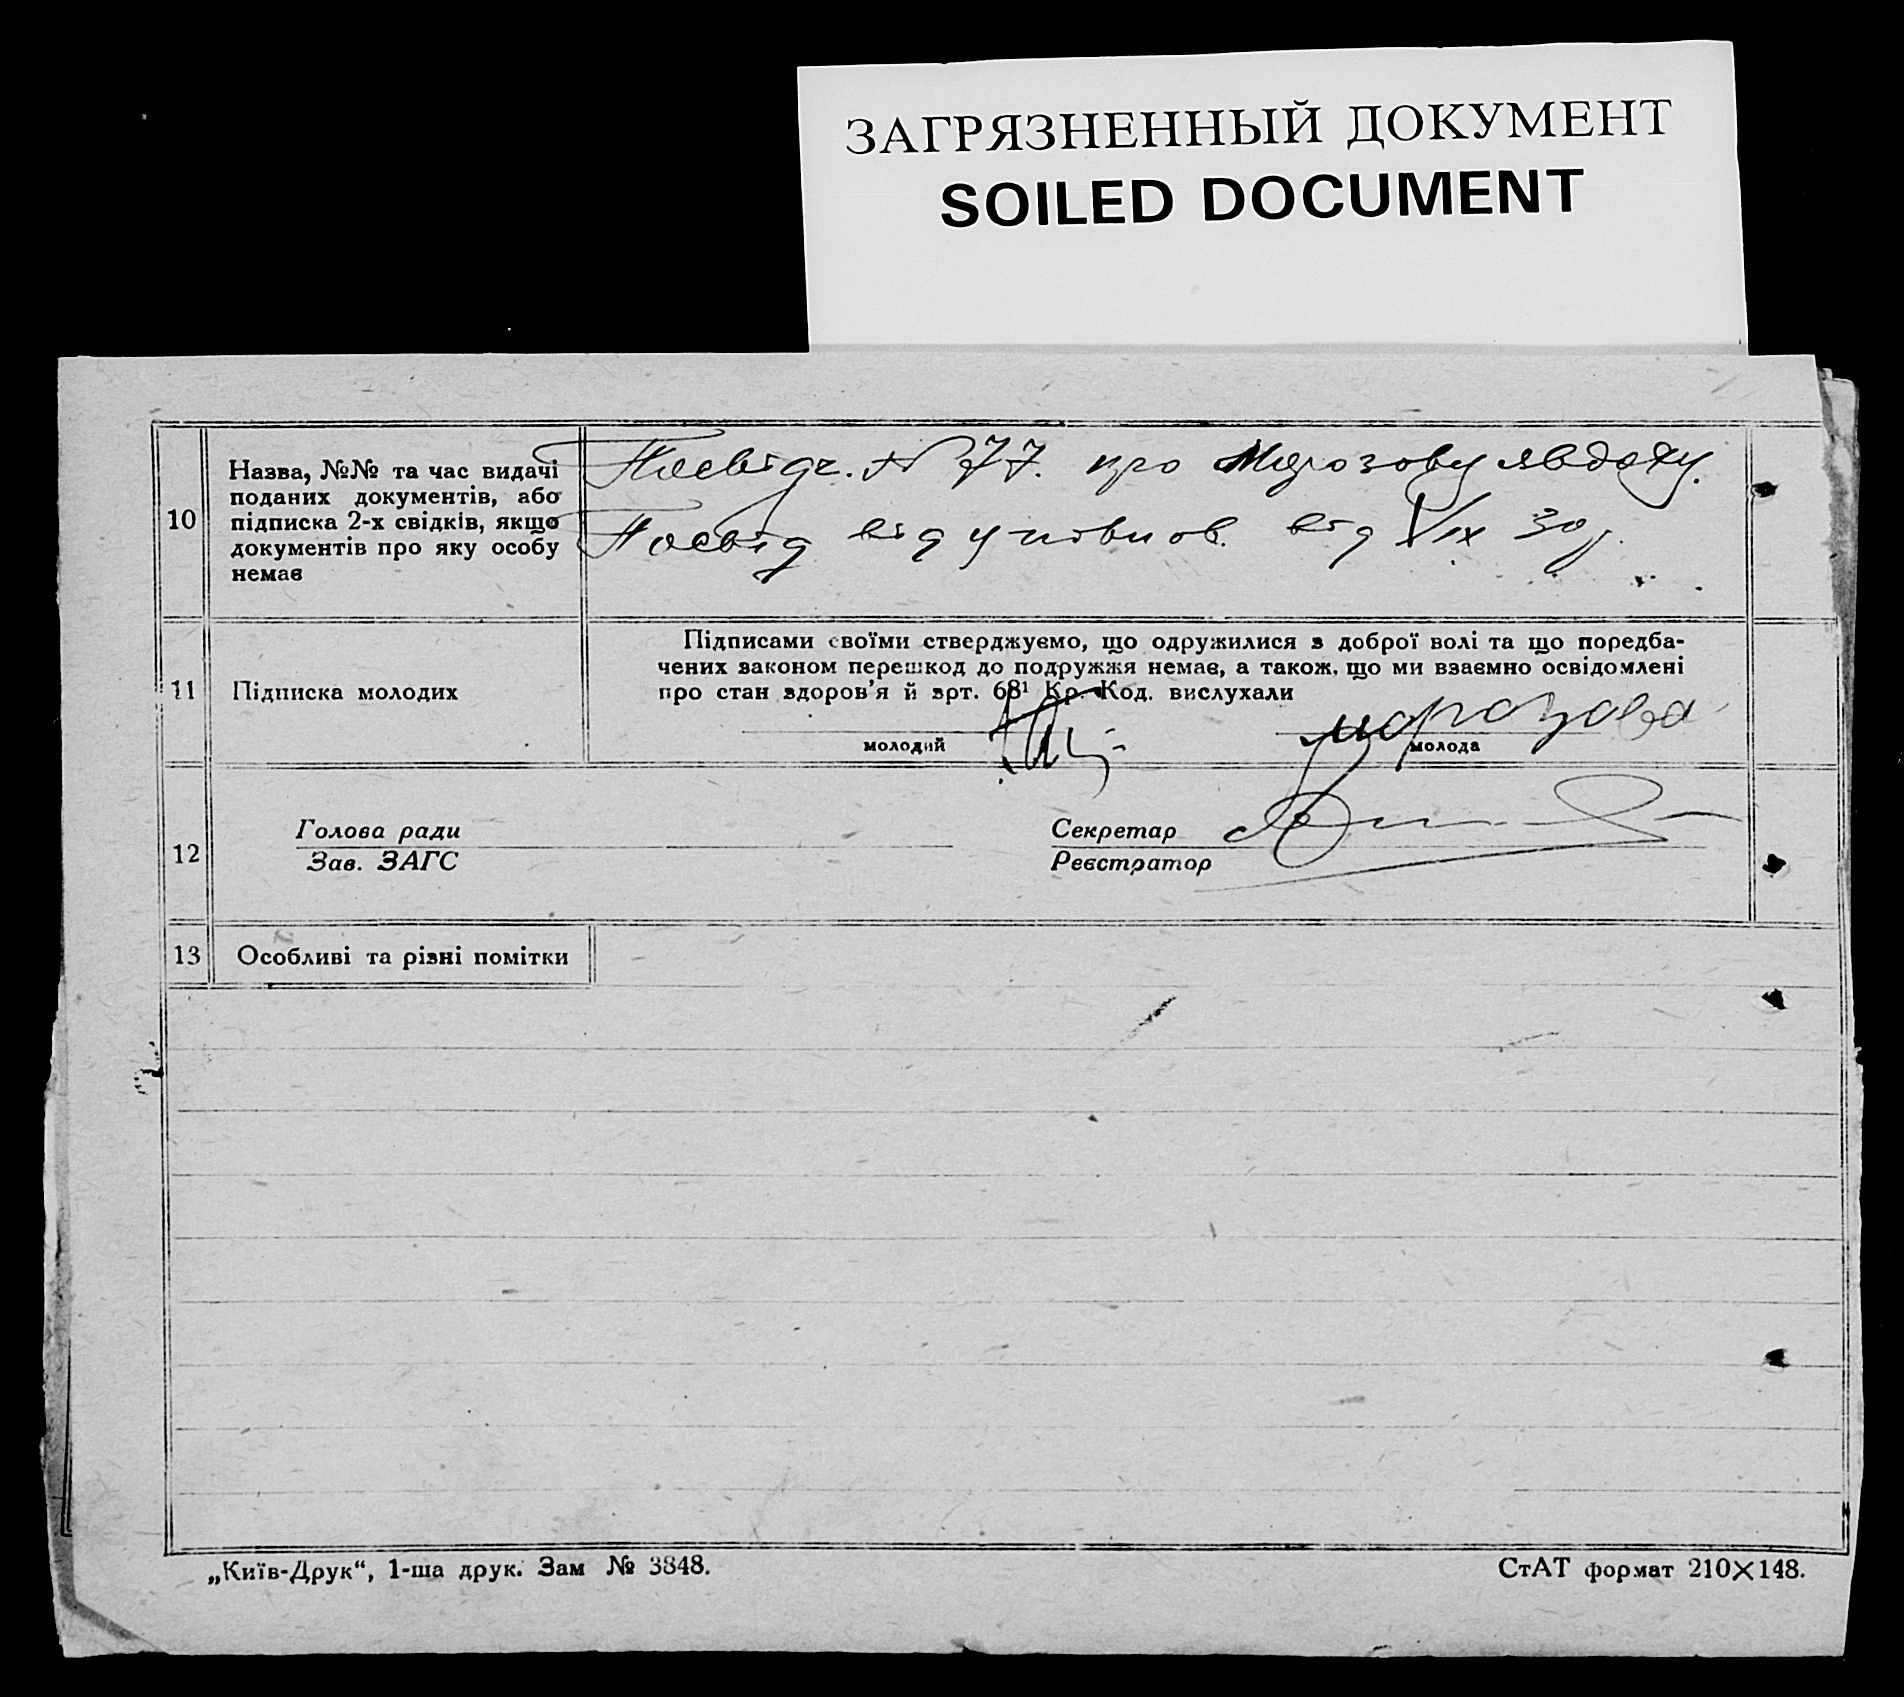 ЗАГРЯЗНЕННЫЙ ДОКУМЕНТ
SOILED DOCUMENT
10
Назва, №№ та час видачі
поданих документів, або
підписка 2-х свідків, якщо
документів про яку особу
немає
Посвідч. № 77. про Морозову явдоху.
Посвід від уповнов. від IX 30 р.
11
Підписка молодих
Підписами своїми стверджуємо, що одружилися з доброї волі та що поредба-
чених законом перешкод до подружжя немає, а також, що ми взаємно освідомлені
про стан здоров'я й арт. 68¹ Кр. Код. вислухали
морозова
молодий
молода
12
Голова ради
Зав. ЗАГС
Секретар
Реєстратор
13
Особливі та різні помітки
„Київ-Друк“, 1-ша друк. Зам № 3848.
СтАТ формат 210×148.